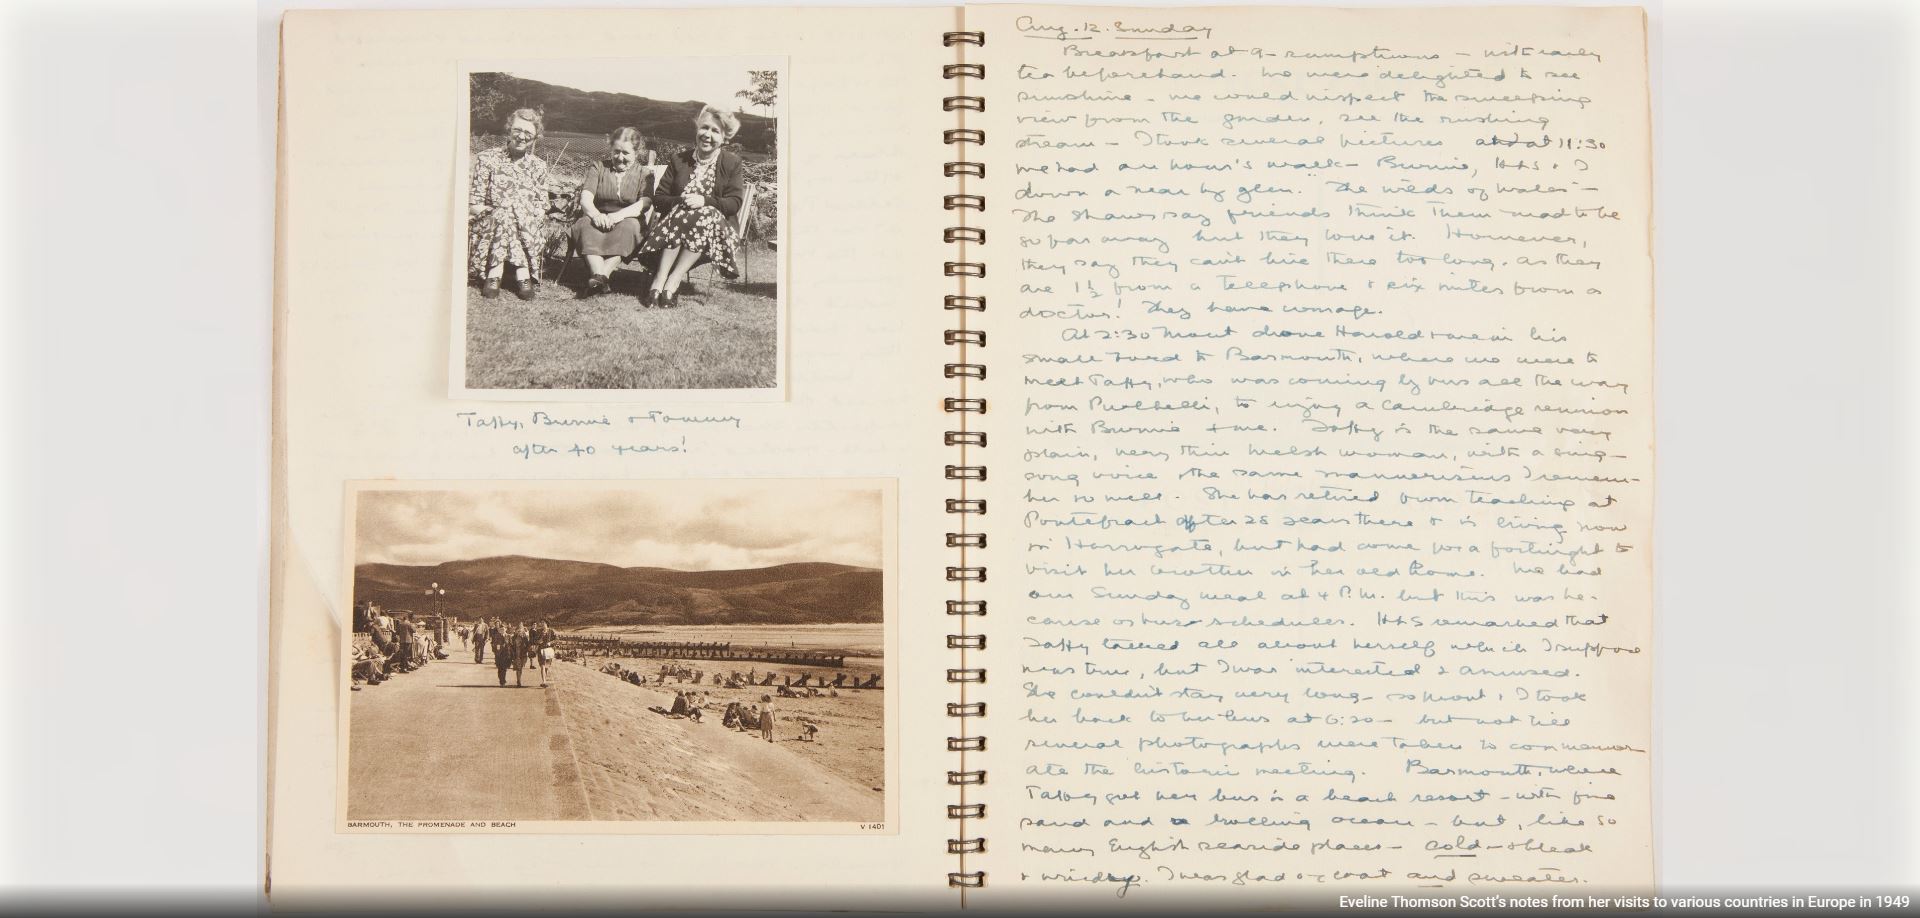 Taffy, Burnie + Tommy
after 40 years!
BARMOUTH, THE PROMENADE AND BEACH
V 1401
Aug. 12. Sunday
Breakfast at 9 - sumptuous - with early
tea beforehand. We were delighted to see
sunshine - we could inspect the sweeping
view from the garden, see the rushing
stream - I took several pictures and at 11:30
we had an hour's walk - Burnie, HHS + I
down a near by glen. "The wilds of Wales" -
The Shaws say friends think them mad to be
so far away but they love it. However,
they say they can't live there too long, as they
are 1½ from a telephone + six miles from a
doctor! They have courage.
At 2:30 Mont drove Harold + me in his
small Ford to Barmouth, where we were to
meet Taffy, who was coming by bus all the way
from Pwllheli, to enjoy a Cambridge reunion
with Burnie + me. Taffy is the same very
plain, very thin Welsh woman, with a sing-
song voice + the same mannerisms I remem-
ber so well. She has retired from teaching at
Pontefract after 28 years there + is living now
in Harrogate, but had come for a fortnight to
visit her brother in her old home. We had
our Sunday meal at 4 P.M. but this was be-
cause of bus schedules. HHS remarked that
Taffy talked all about herself which I suppose
was true, but I was interested & amused.
She couldn't stay very long - so Mont + I took
her back to her bus at 6:20 - but not till
several photographs were taken to commemor-
ate the historic meeting. Barmouth, where
Taffy got her bus is a beach resort - with fine
sand and a rolling ocean - but, like so
many English seaside places - cold - + bleak
+ windy. I was glad of coat and sweater.
Eveline Thomson Scott's notes from her visits to various countries in Europe in 1949